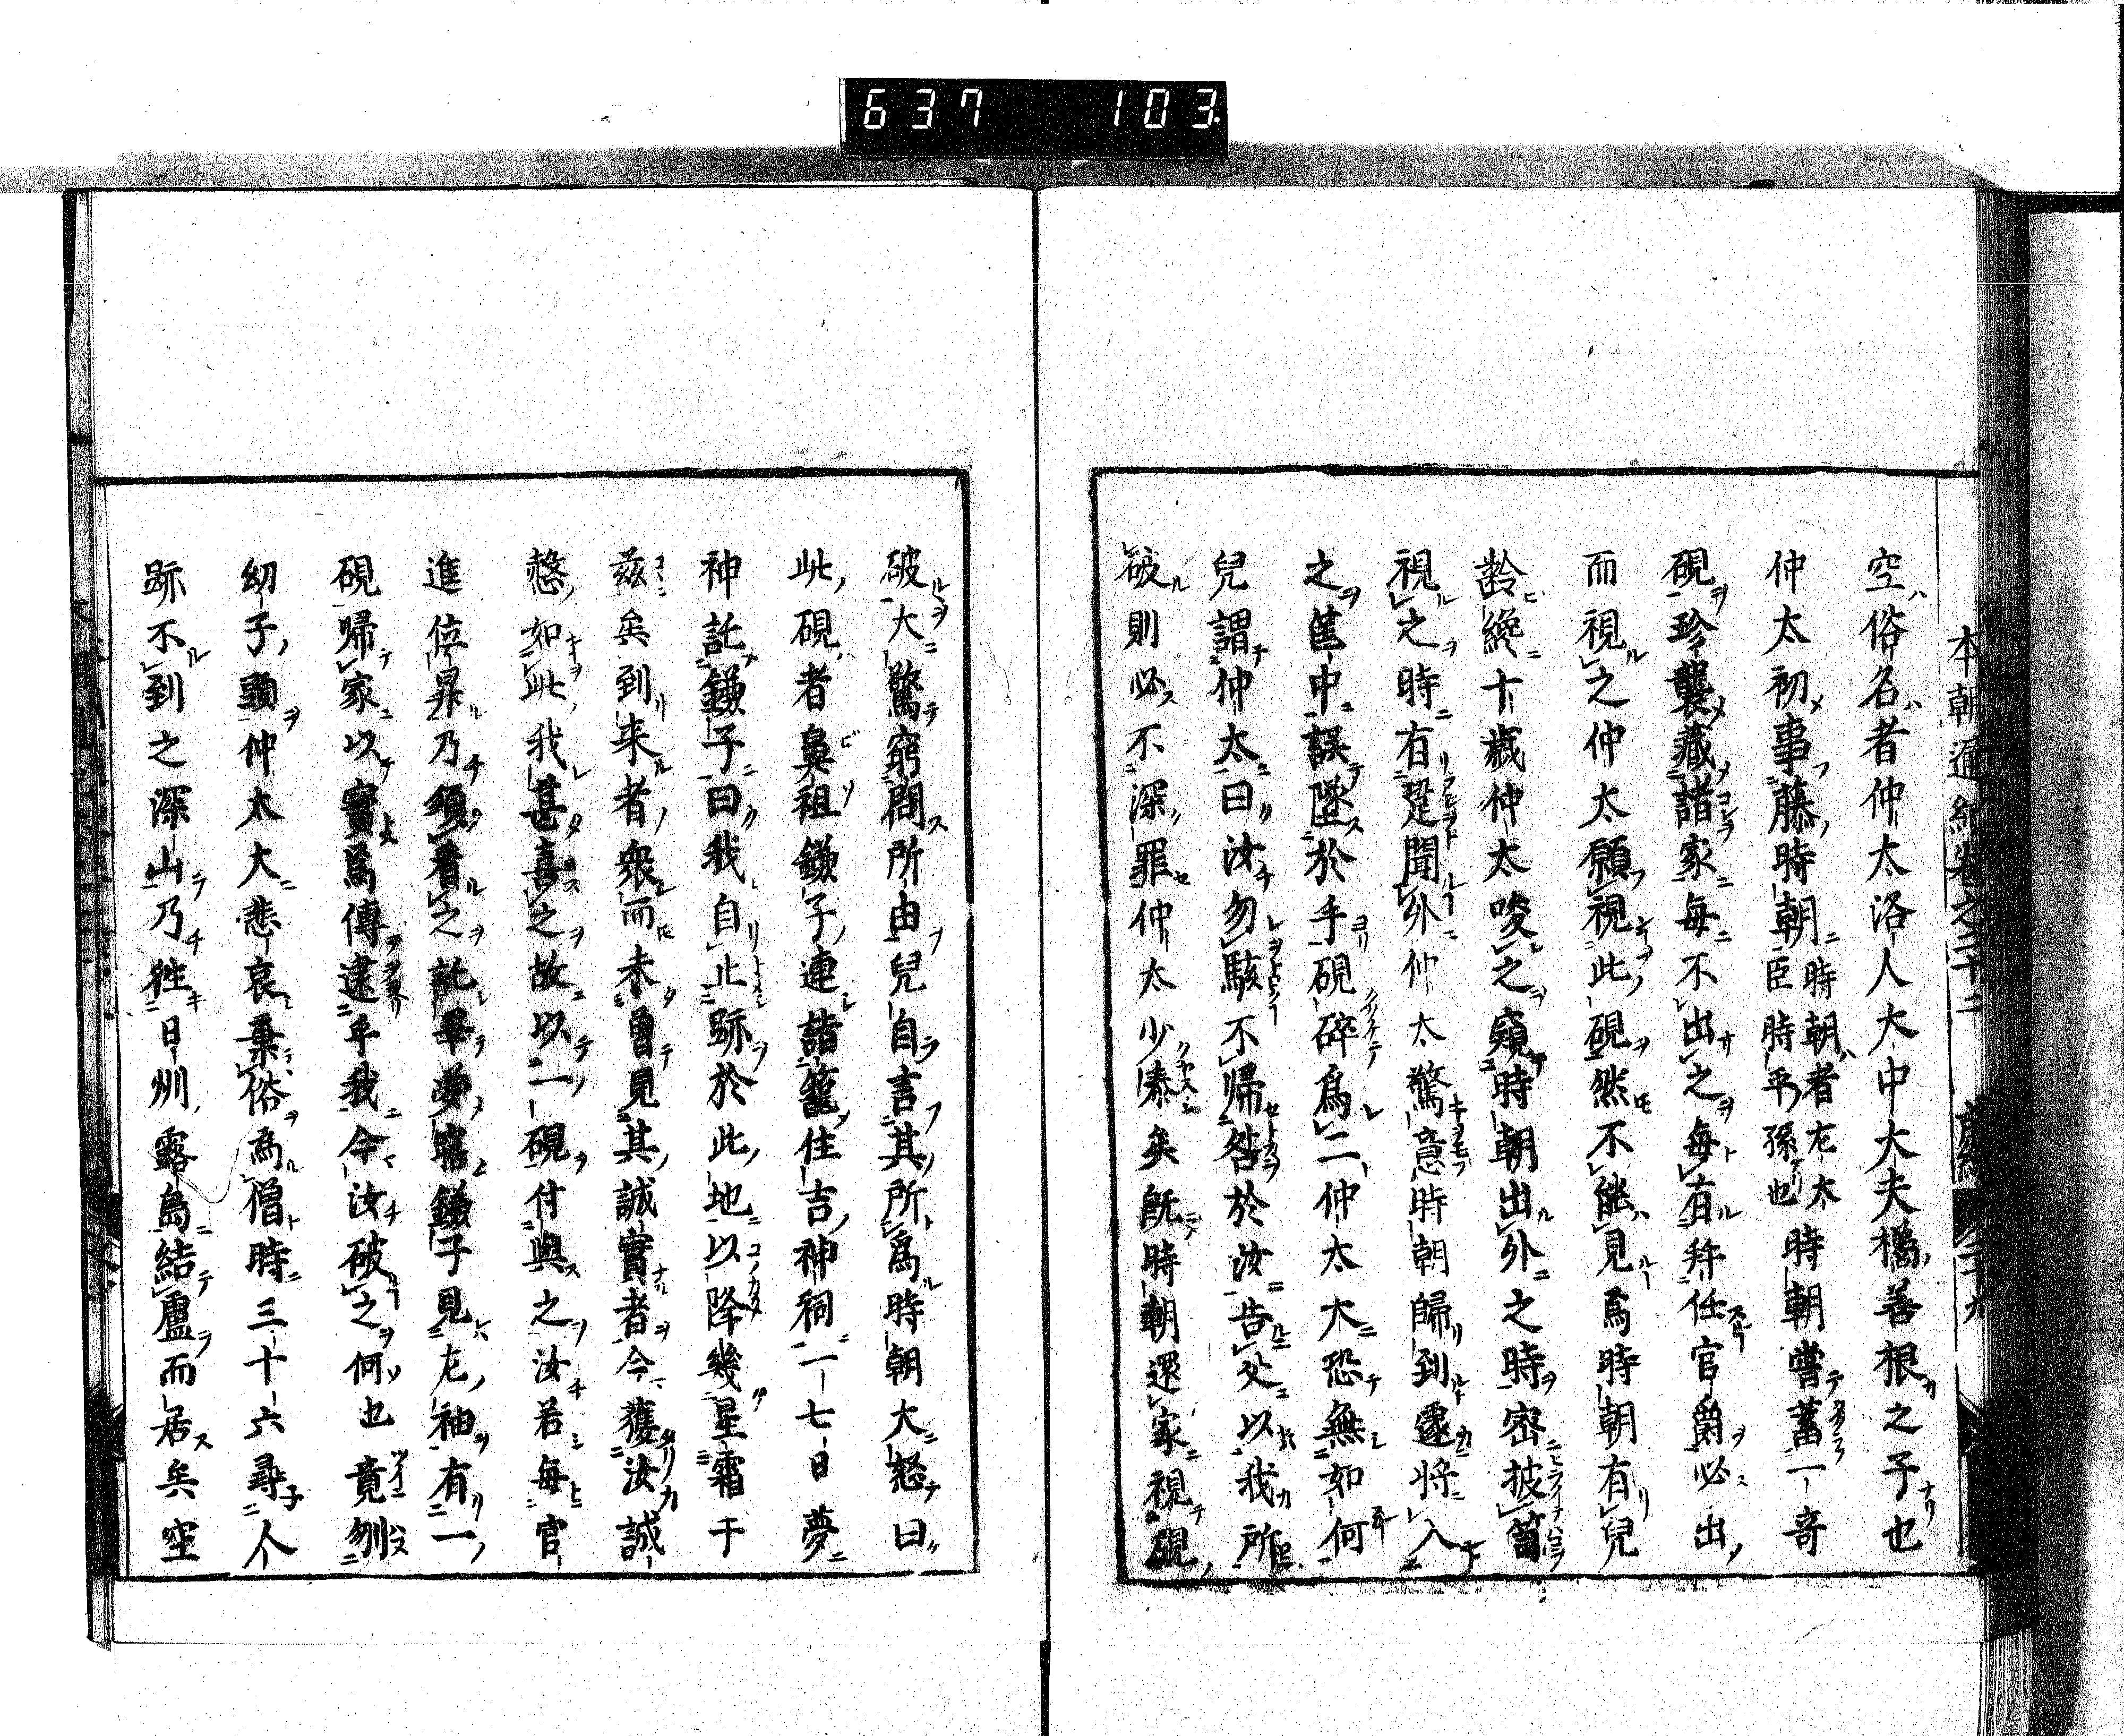 637 103.
本朝通紀卷之二十二
空俗名者仲太洛人大中大夫橘善根之子也
仲太初事藤時朝時朝者左大臣時平孫也時朝嘗蓄一奇
硯珍襲藏諸家每不出之每有拜任官爵必出
而視之仲太願視此硯然不能見焉時朝有兒
齡纔十歳仲太唆之窺時朝出外之時密披筥
視之時有跫聞外仲太驚意時朝歸到遽将入
之筐中誤墜於手硯碎爲二仲太大恐無如何
兒謂仲太曰汝勿駭不歸咎於汝告父以我所
破則必不深罪仲太少慂矣既時朝還家視硯
破大驚窮問所由兒自言其所爲時朝大怒曰
此硯者梟祖鎌子連詣籠住吉神祠一七日夢
神託鎌子曰我自止跡於此地以降幾星霜于
兹矣到来者衆而未曾見其誠實者今獲汝誠
慤如此我甚喜之故以一硯付與之汝若每官
進位昇乃須看之託畢夢寤鎌子見左袖有一
硯帰家以寳焉傳逮乎我今汝破之何也竟刎
幼子頭仲太大悲哀棄俗為僧時三十六尋人
跡不到之深山乃徃日州霧島結廬而居矣空